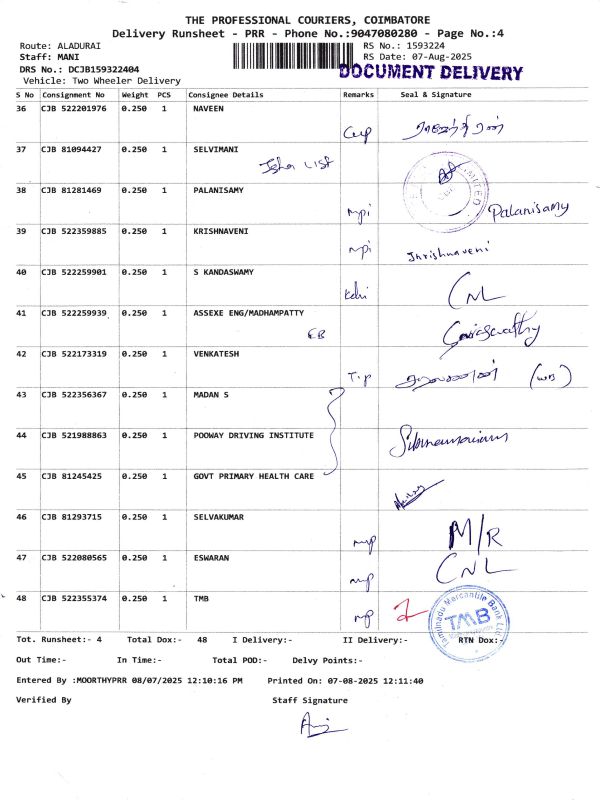 THE PROFESSIONAL COURIERS, COIMBATORE
Delivery Runsheet - PRR - Phone No.:9047080280 - Page No.:4
Route: ALADURAI RS No.: 1593224
Staff: MANI RS Date: 07-Aug-2025
DRS No.: DCJB159322404 DOCUMENT DELIVERY
Vehicle: Two Wheeler Delivery
S No Consignment No Weight PCS Consignee Details Remarks Seal & Signature
36 CJB 522201976 0.250 1 NAVEEN
37 CJB 81094427 0.250 1 SELVIMANI
38 CJB 81281469 0.250 1 PALANISAMY
mpi Palanisamy
39 CJB 522359885 0.250 1 KRISHNAVENI
mpi
40 CJB 522259901 0.250 1 S KANDASWAMY
CNL
41 CJB 522259939 0.250 1 ASSEXE ENG/MADHAMPATTY
EB
42 CJB 522173319 0.250 1 VENKATESH
T.p
43 CJB 522356367 0.250 1 MADAN S
44 CJB 521988863 0.250 1 POOWAY DRIVING INSTITUTE
45 CJB 81245425 0.250 1 GOVT PRIMARY HEALTH CARE
46 CJB 81293715 0.250 1 SELVAKUMAR
mp M/R
47 CJB 522080565 0.250 1 ESWARAN
mp CNL
48 CJB 522355374 0.250 1 TMB
mp Tamilnadu Mercantile Bank Ltd TMB
Tot. Runsheet:- 4 Total Dox:- 48 I Delivery:- II Delivery:- RTN Dox:-
Out Time:- In Time:- Total POD:- Delvy Points:-
Entered By :MOORTHYPRR 08/07/2025 12:10:16 PM Printed On: 07-08-2025 12:11:40
Verified By Staff Signature